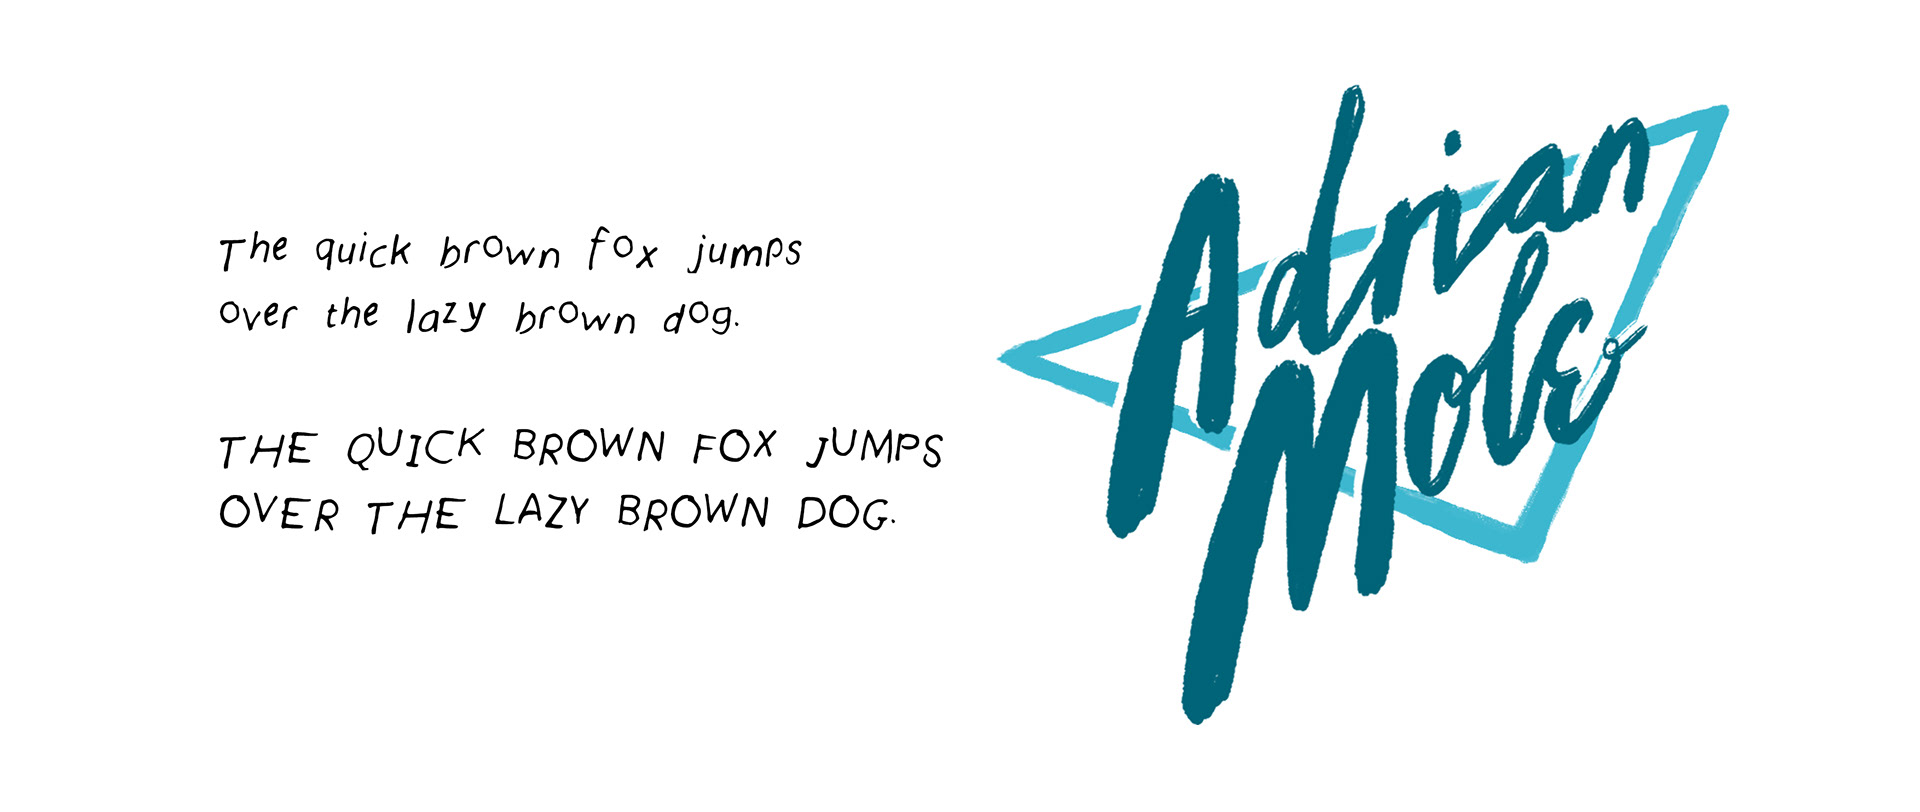 The quick brown fox jumps
over the lazy brown dog.
THE QUICK BROWN FOX JUMPS
OVER THE LAZY BROWN DOG.
Adrian
Mole